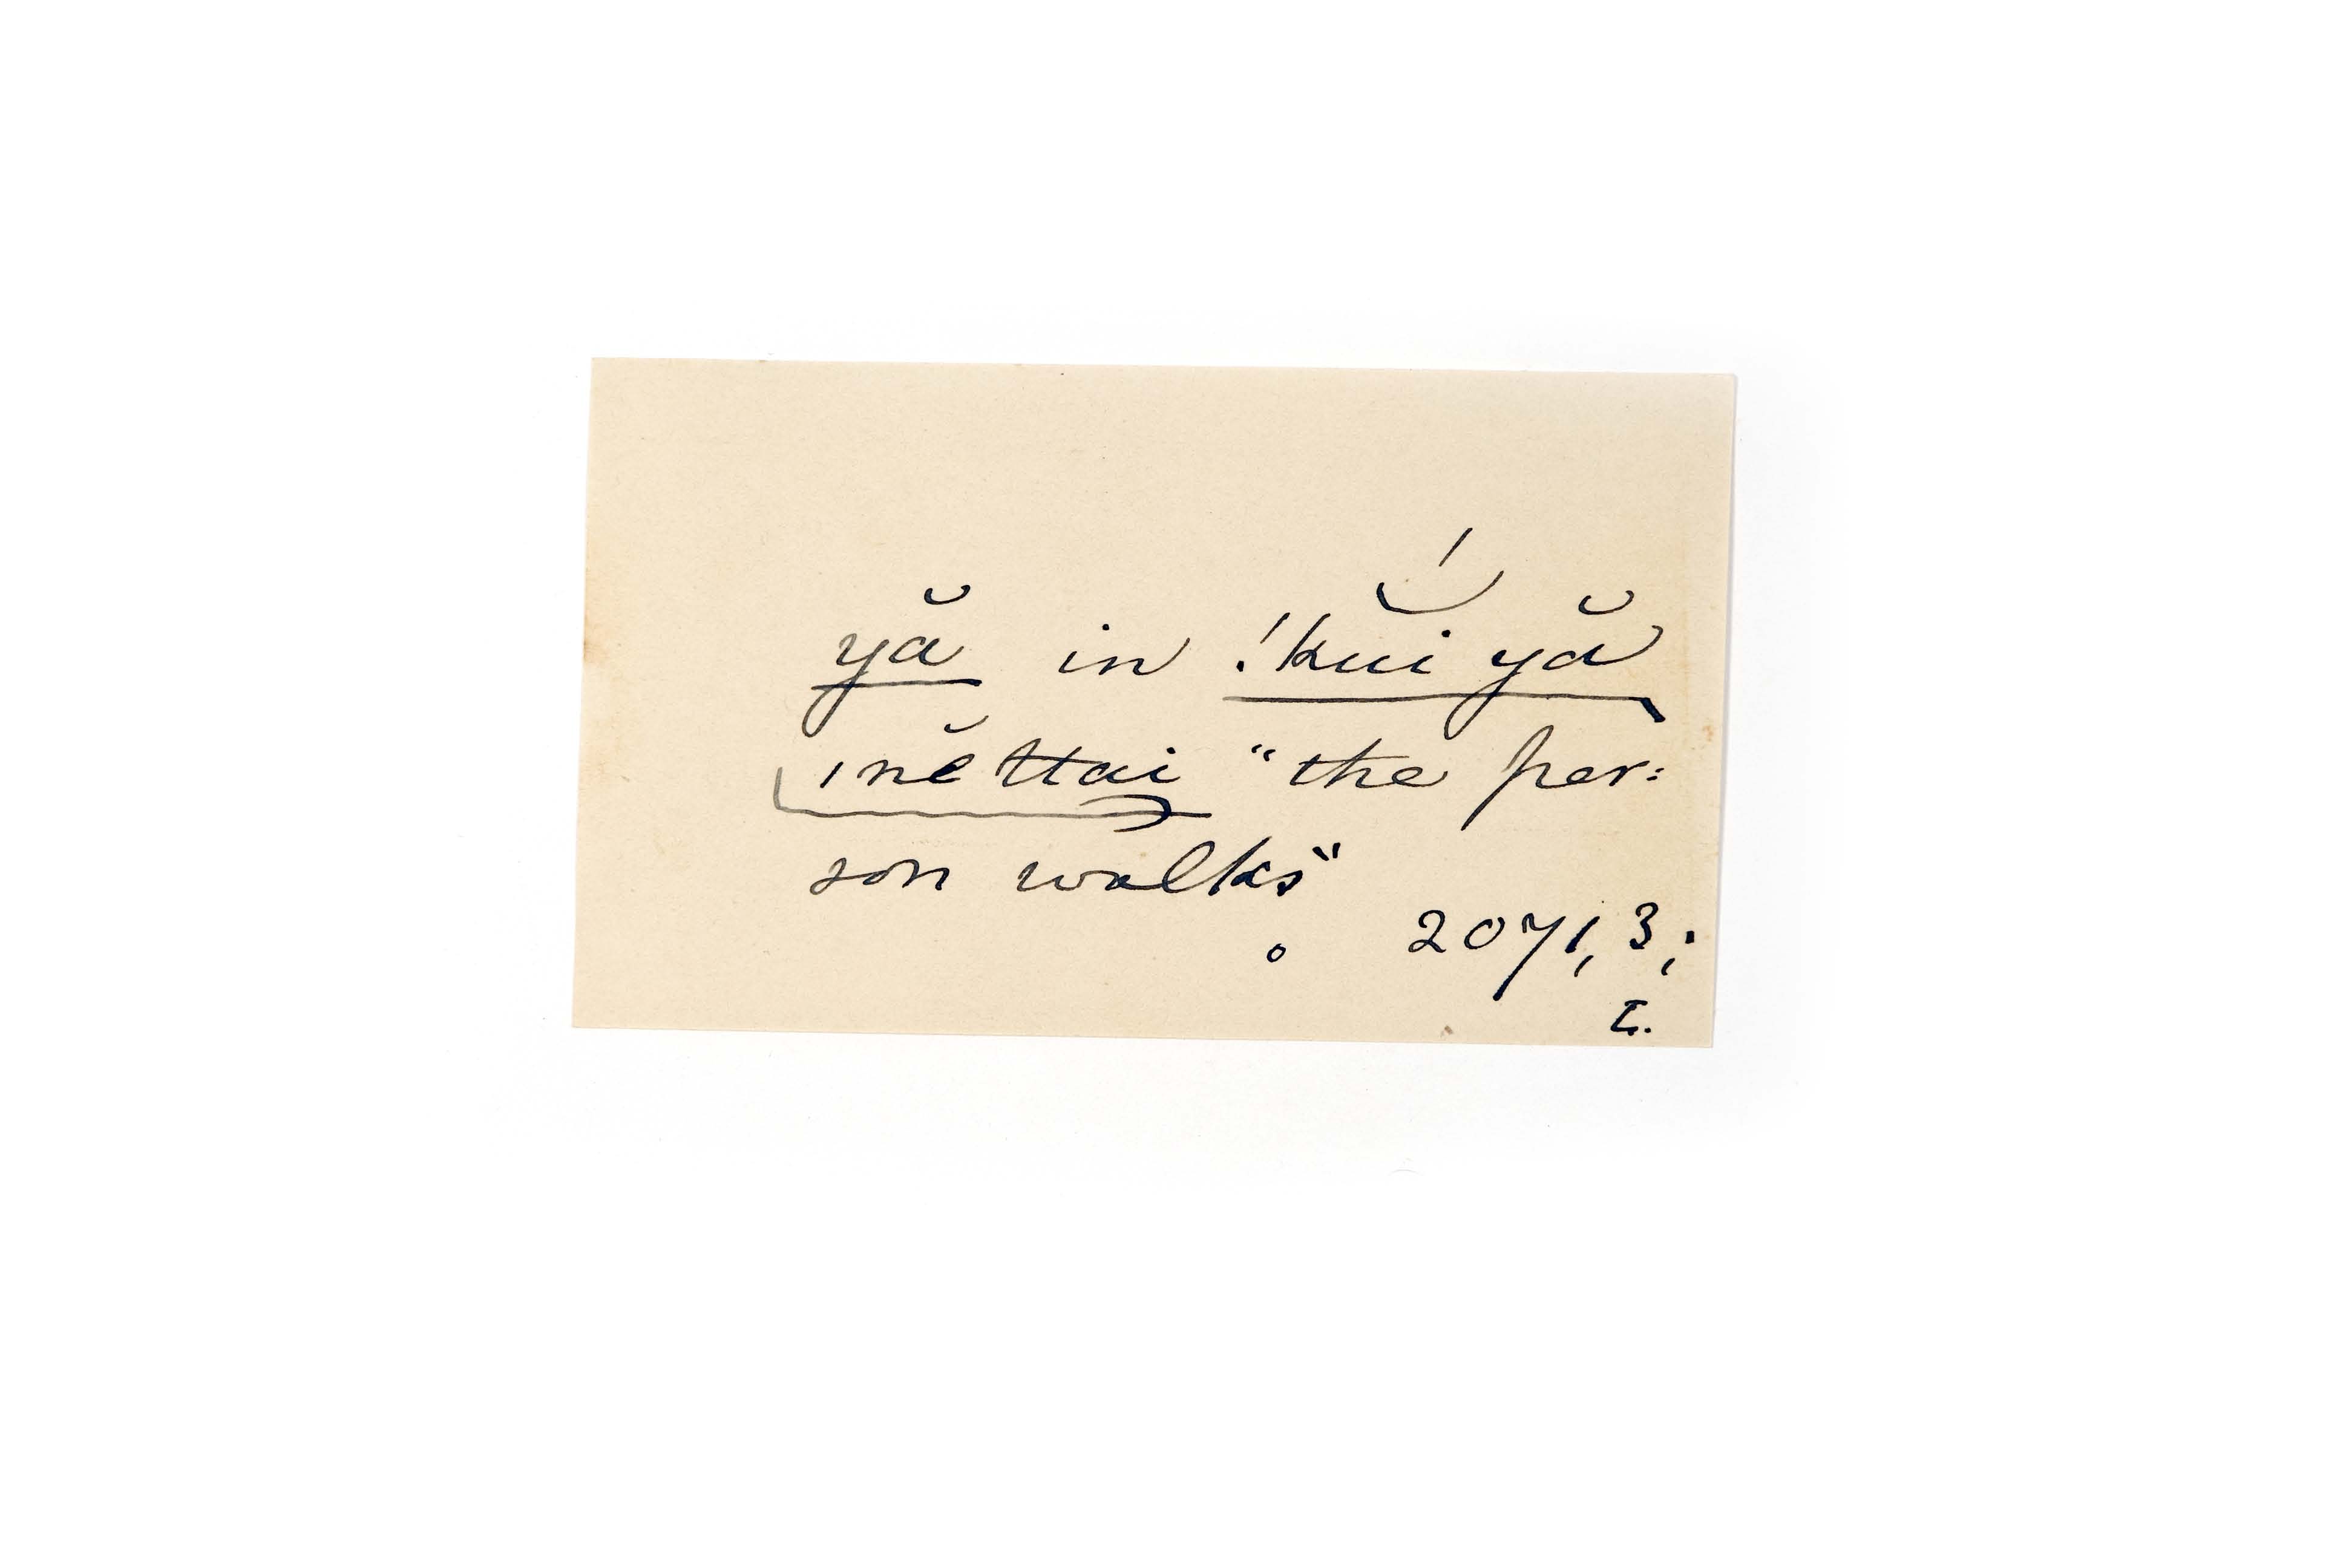 yă in !kŭí yă
ınĕ ttai “the per:
son walks”
. 2071, 3;
I.